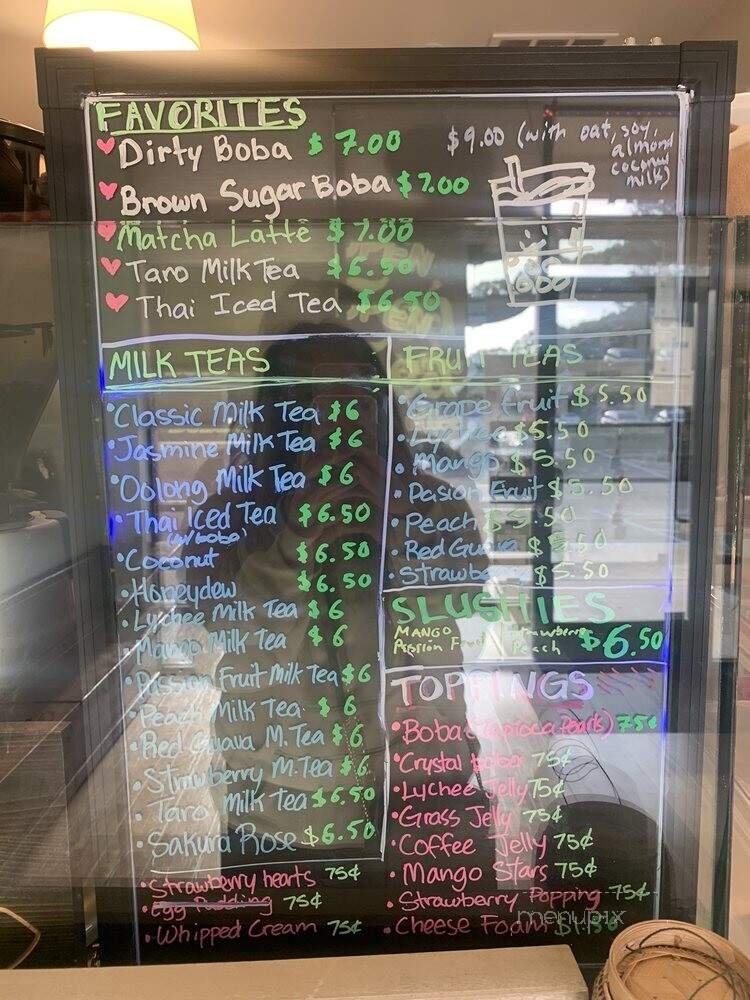 FAVORITES
Dirty Boba $7.00
$9.00 (with oat, soy, almond coconut milk)
Brown Sugar Boba $7.00
Matcha Latte $7.00
Taro Milk Tea $6.50
Thai Iced Tea $6.50
MILK TEAS
• Classic Milk Tea $6
• Jasmine Milk Tea $6
• Oolong Milk Tea $6
• Thai Iced Tea $6.50
(w/boba)
• Coconut $6.50
• Honeydew $6.50
• Lychee Milk Tea $6
• Mango Milk Tea $6
• Passion Fruit Milk Tea $6
• Peach Milk Tea $6
• Red Guava M.Tea $6
• Strawberry M.Tea $6
• Taro Milk Tea $6.50
• Sakura Rose $6.50
• Strawberry hearts 75¢
• Egg Pudding 75¢
• Whipped Cream 75¢
FRUIT TEAS
• Grape fruit $5.50
• Lychee $5.50
• Mango $5.50
• Pasion Fruit $5.50
• Peach $5.50
• Red Guava $5.50
• Strawberry $5.50
SLUSHIES
MANGO Strawberry
Passion Fruit Peach $6.50
TOPPINGS
• Boba (Tapioca Pearls) 75¢
• Crystal boba 75¢
• Lychee Jelly 75¢
• Grass Jelly 75¢
• Coffee Jelly 75¢
• Mango Stars 75¢
• Strawberry Popping 75¢
• Cheese Foam $1.50
menupix